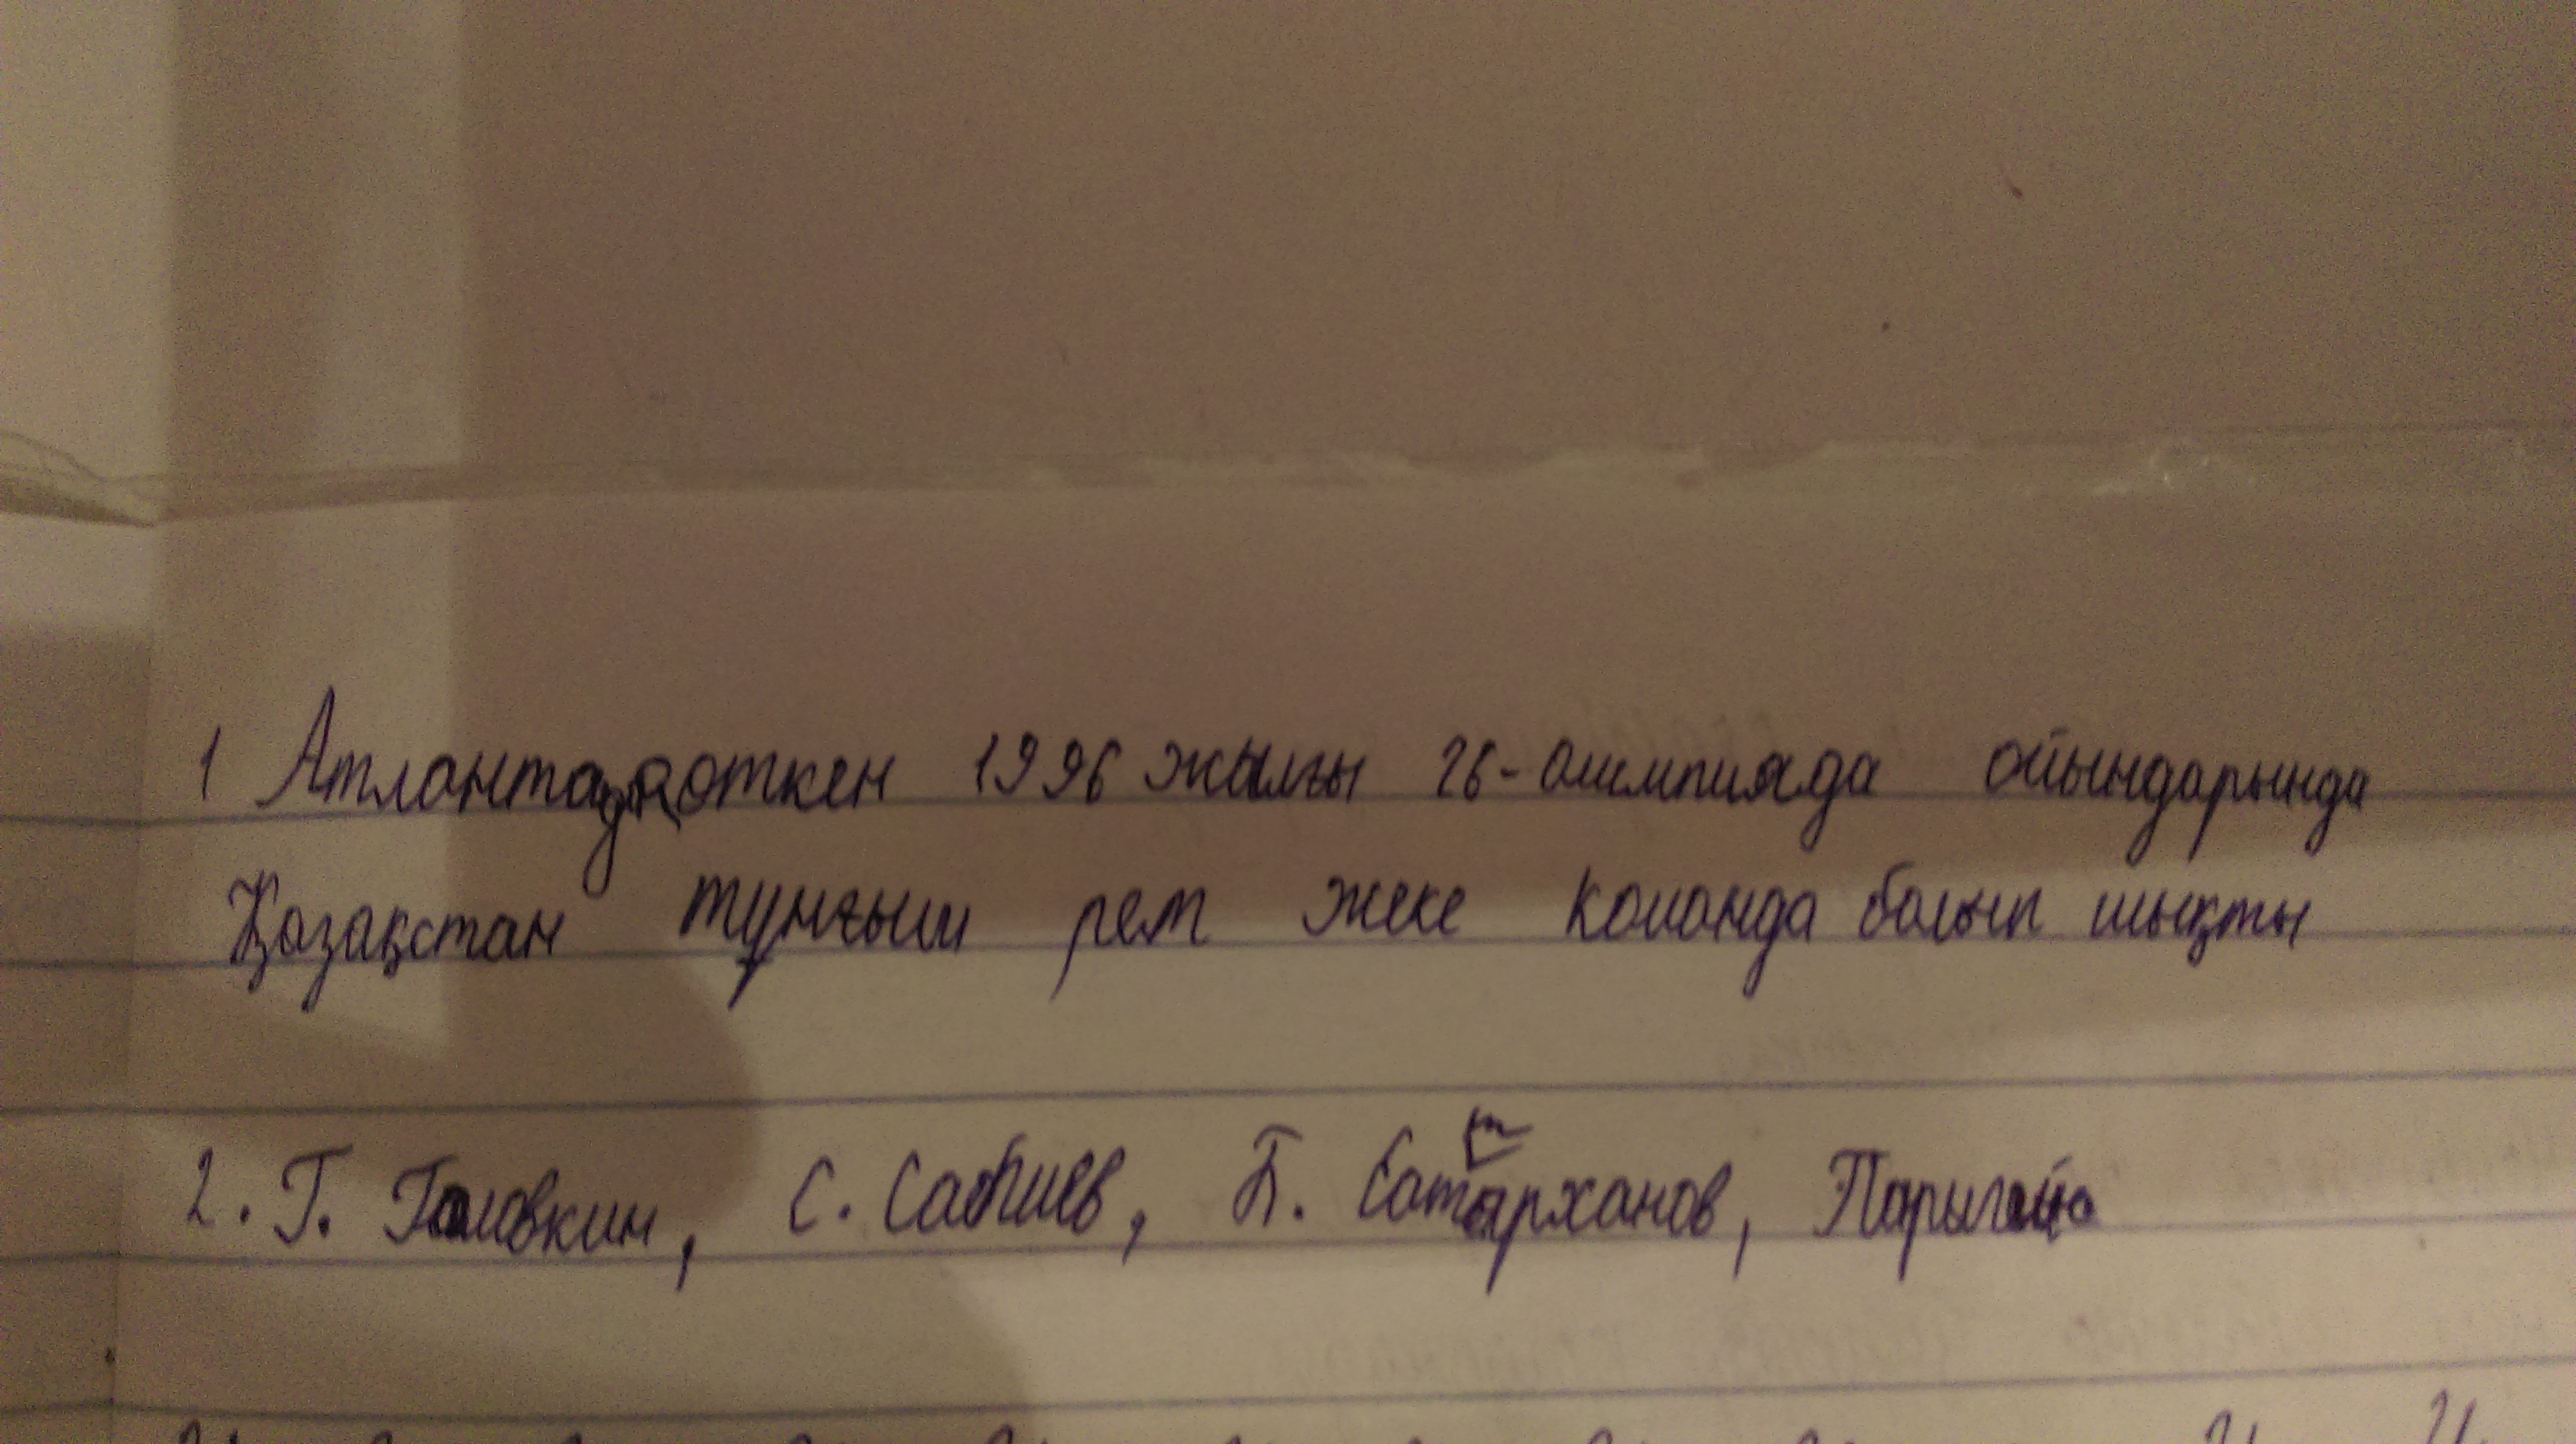 1 Атлантада откен 1996 жылғы 26-олимпияда ойындарында
Қазақстан тұңғыш рет жеке команда болып шықты
2. Г. Головкин, С. Сапиев, Б. Саттарханов,